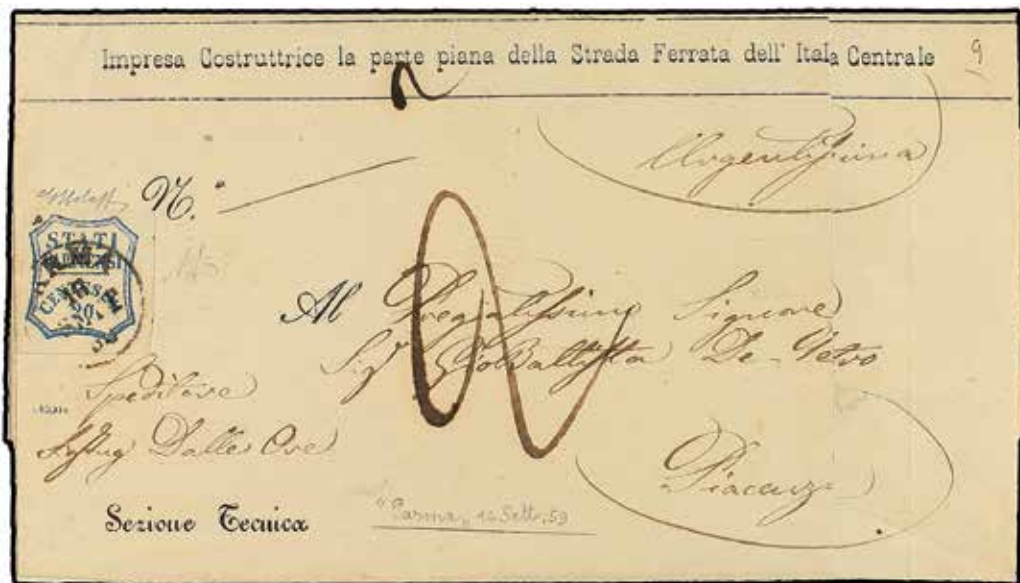 Impresa Costruttrice la parte piana della Strada Ferrata dell' Itala Centrale
9
Urgentissima
N.°
STATI
PARMENSI
CENTESIMI
20
Al Pregiatissimo Signore
Sigr GioBattista De-Vetro
Speditore
Dalle Ore
Piacenza
Sezione Tecnica
"Parma, 14 Sett. 59